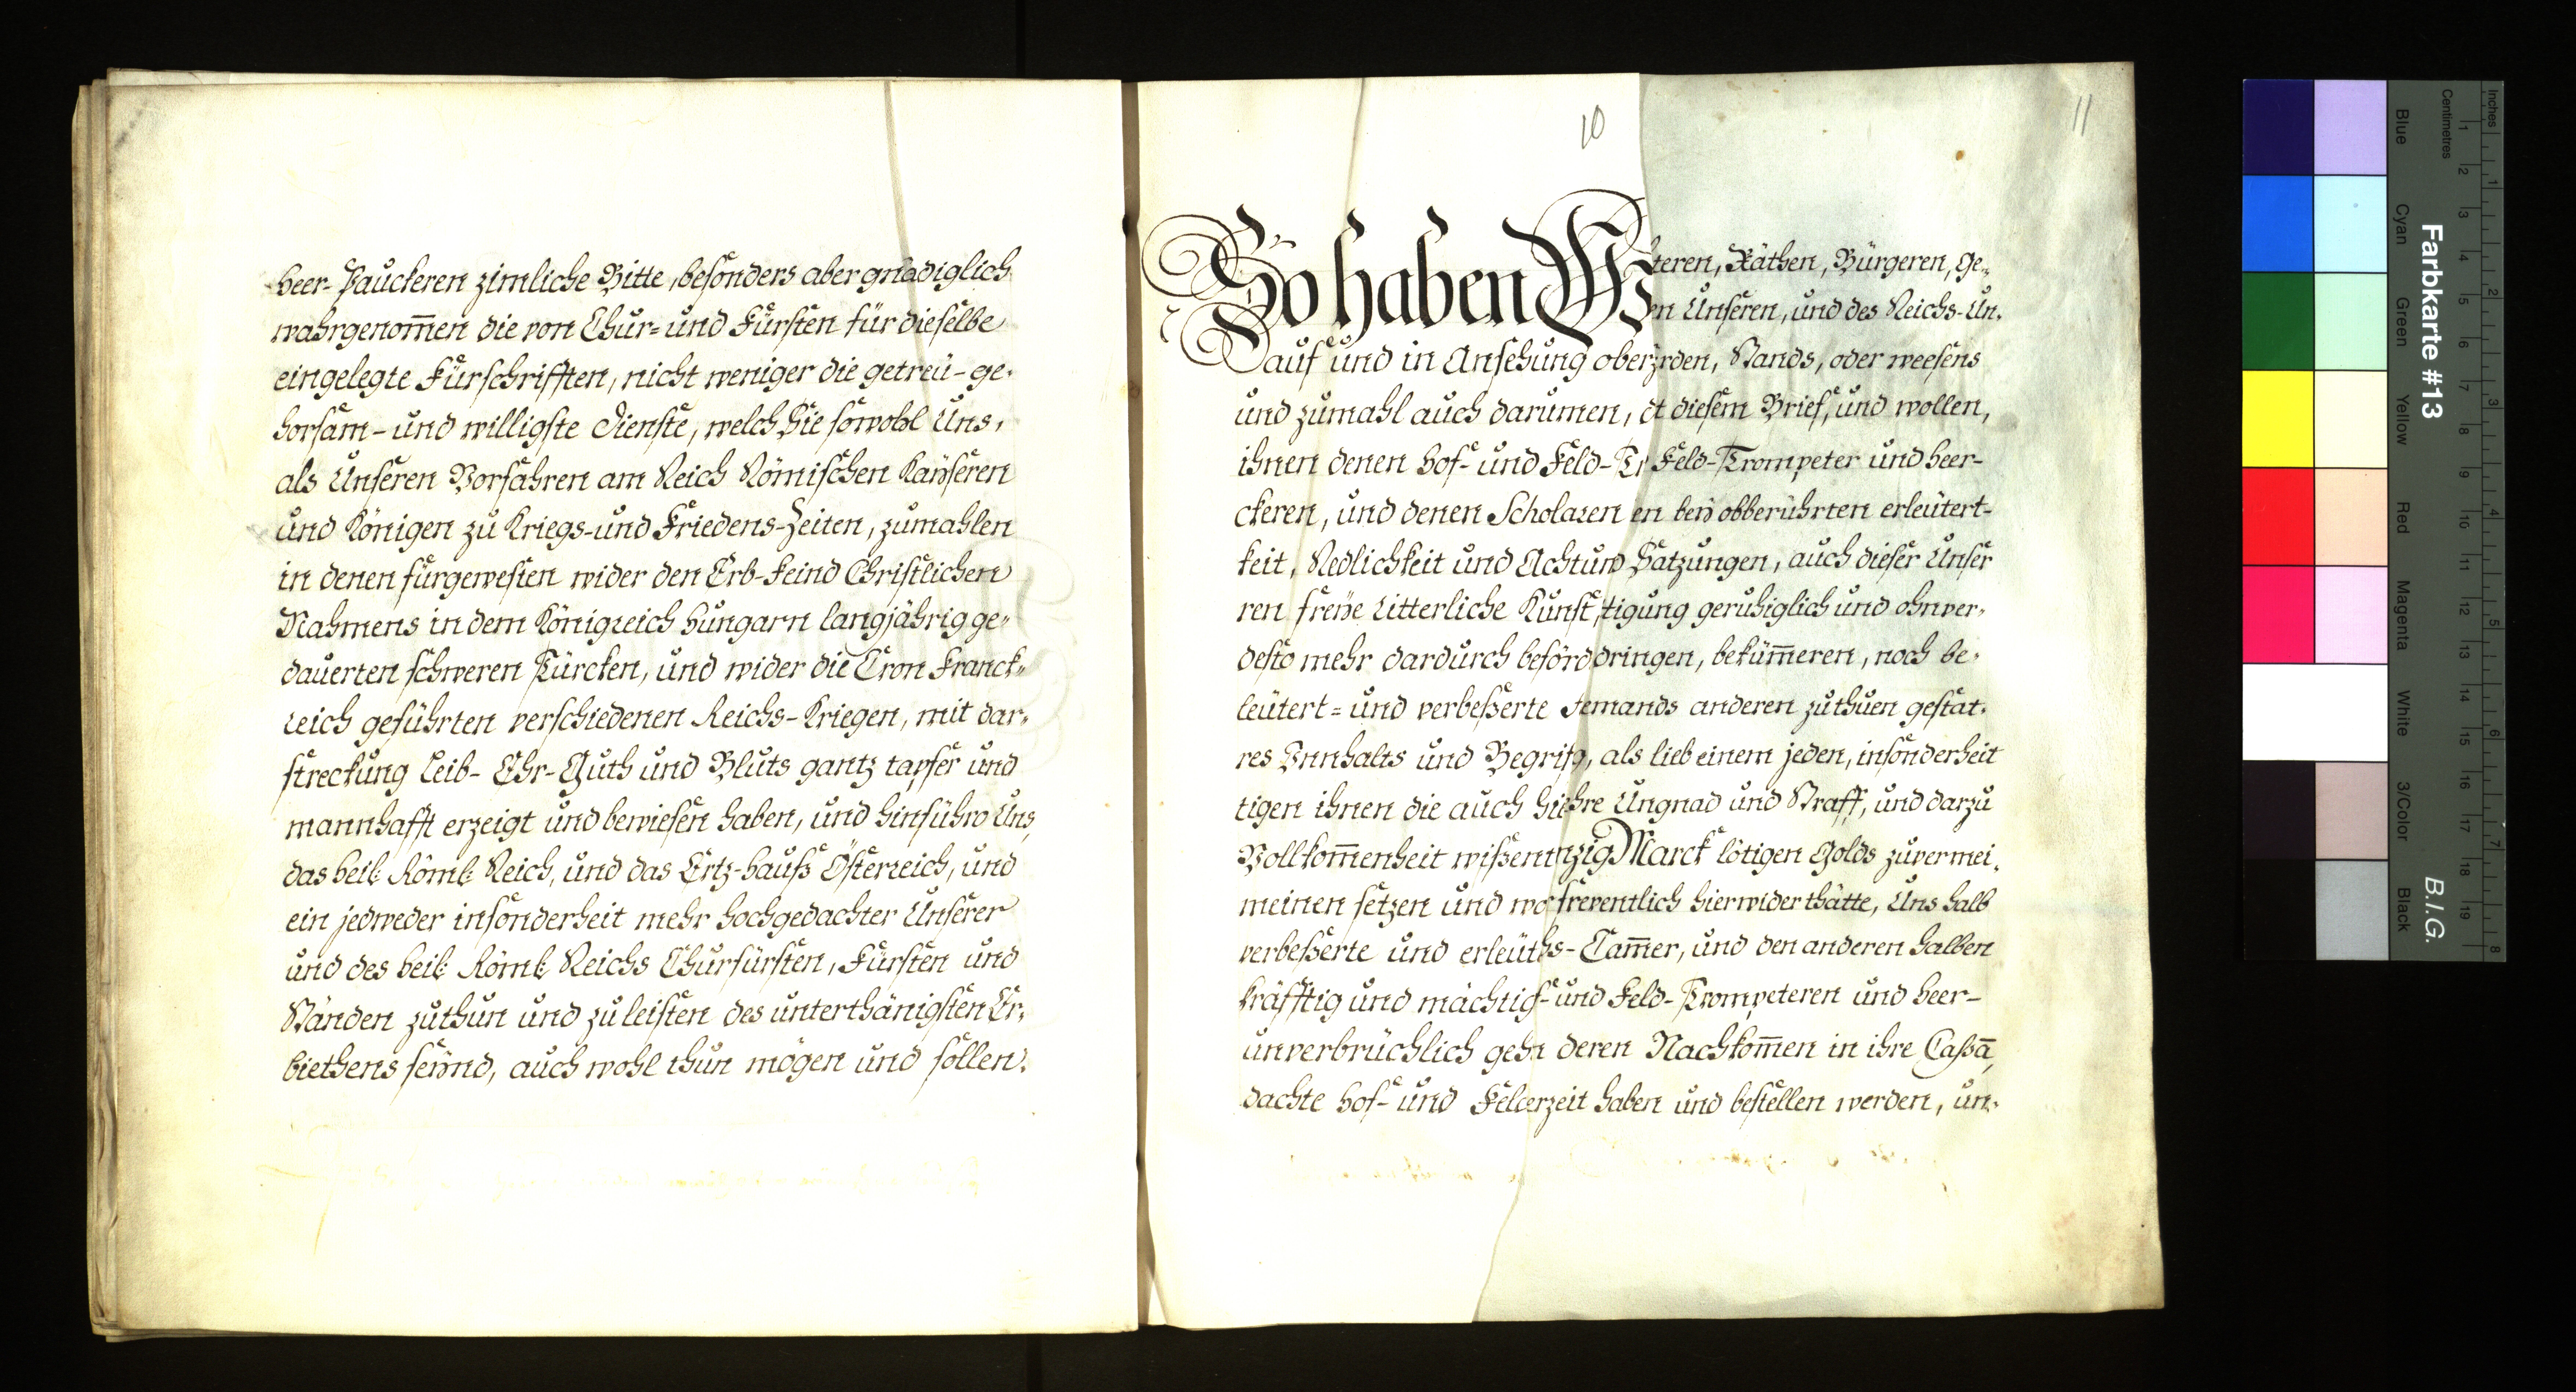 Heer-Pauckeren zimliche Bitte, besonders aber gnadiglich
wahrgenom̄en die von Chur- und Fürsten für dieselbe
eingelegte Fürschrifften, nicht weniger die getreü-ge-
horsam- und willigste Dienste, welch Sie sowohl Uns,
als Unseren Vorfahren am Reich Römischen Kaÿseren
und Königen zu Kriegs- und Friedens-Zeiten, zumahlen
in denen fürgewesten wider den Erb-Feind Christlichen
Nahmens in dem Königreich Hungarn langjährig ge-
dauerten schweren Türcken, und wider die Cron Franck-
reich geführten verschiedenen Reichs-Kriegen, mit dar-
streckung Leib- Ehr- Guth und Bluts gantz tapfer und
mannhafft erzeigt und bewiesen haben, und hinführo Uns,
das Heil: Röml: Reich, und das Ertz-Hauß Österreich, und
ein jedweder insonderheit mehr hochgedachter Unserer
und des Heil: Röml: Reichs Churfürsten, Fürsten und
Ständen zuthun und zu leisten des unterthänigsten Er-
biethens seÿnd, auch wohl thun mögen und sollen.
10
11
So haben W
teren, Räthen, Bürgeren, ge-
en Unseren, und des Reichs-Un-
Dauf und in Ansehung ober rden, Stands, oder weesens
und zumahl auch darumen, d t diesem Brief, und wollen,
ihnen denen Hof- und Feld-Tr Feld-Trompeter und Heer-
ckeren, und denen Scholaren en beÿ obberührten erleütert-
keit, Redlichkeit und Achtun Satzungen, auch dieser Unser
ren freÿe Ritterliche Kunst, tigung geruhiglich und ohnver-
desto mehr dardurch beförd dringen, beküm̄eren, noch be-
leütert- und verbeßerte Jemands anderen zuthuen gestat-
res Innhalts und Begrif g, als lieb einem jeden, insonderheit
tigen ihnen die auch hie hre Ungnad und Straff, und darzu
Vollkom̄enheit wißen nzig Marck lötigen Golds zuvermei-
meinen setzen und wo freventlich hierwider thätte, Uns halb
verbeßerte und erleüt hs-Cam̄er, und den anderen halben
kräfftig und mächtig f- und Feld-Trompeteren und Heer-
unverbrüchlich geh deren Nachkom̄en in ihre Cassā,
dachte Hof- und Feld erzeit haben und bestellen werden, un-
Farbkarte #13
B.I.G.
Inches
Centimetres
Blue
Cyan
Green
Yellow
Red
Magenta
White
3/Color
Black
1 2 3 4 5 6 7 8 9 10 11 12 13 14 15 16 17 18 19
1 2 3 4 5 6 7 8